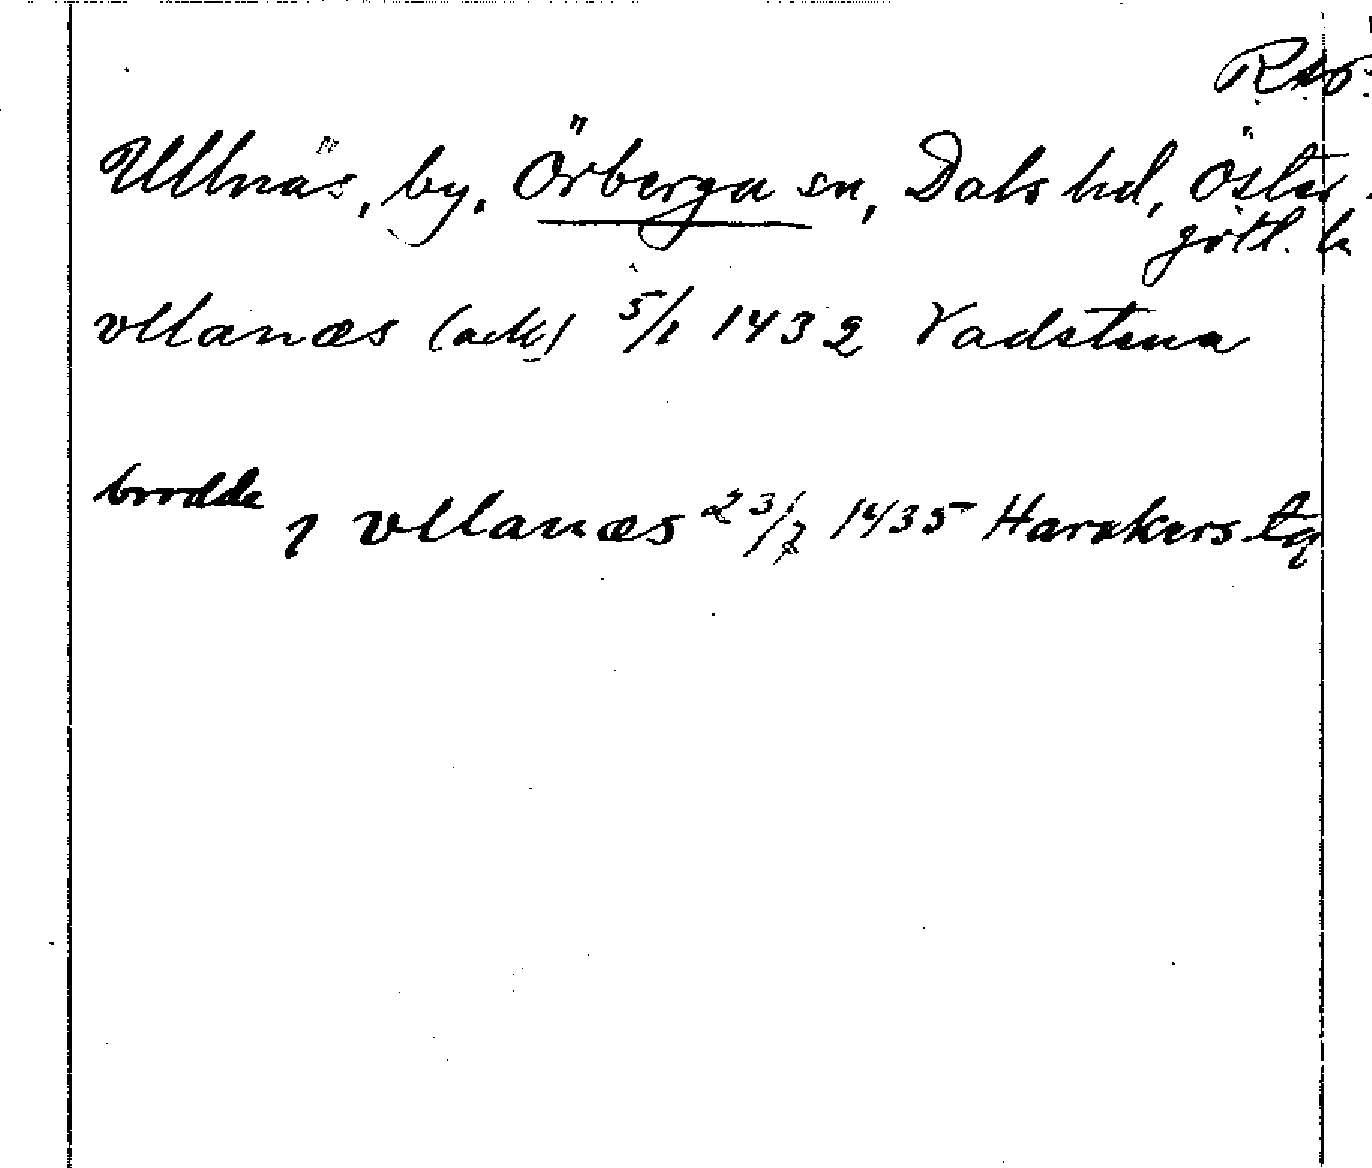 RAP.
Ullnäs, by, Örberga sn, Dals hd, Öster-
götl. l.
vllanæs (ack) 5/1 1432 Vadstena
brodde
j vllanæs 23/7 1435 Harakers tg